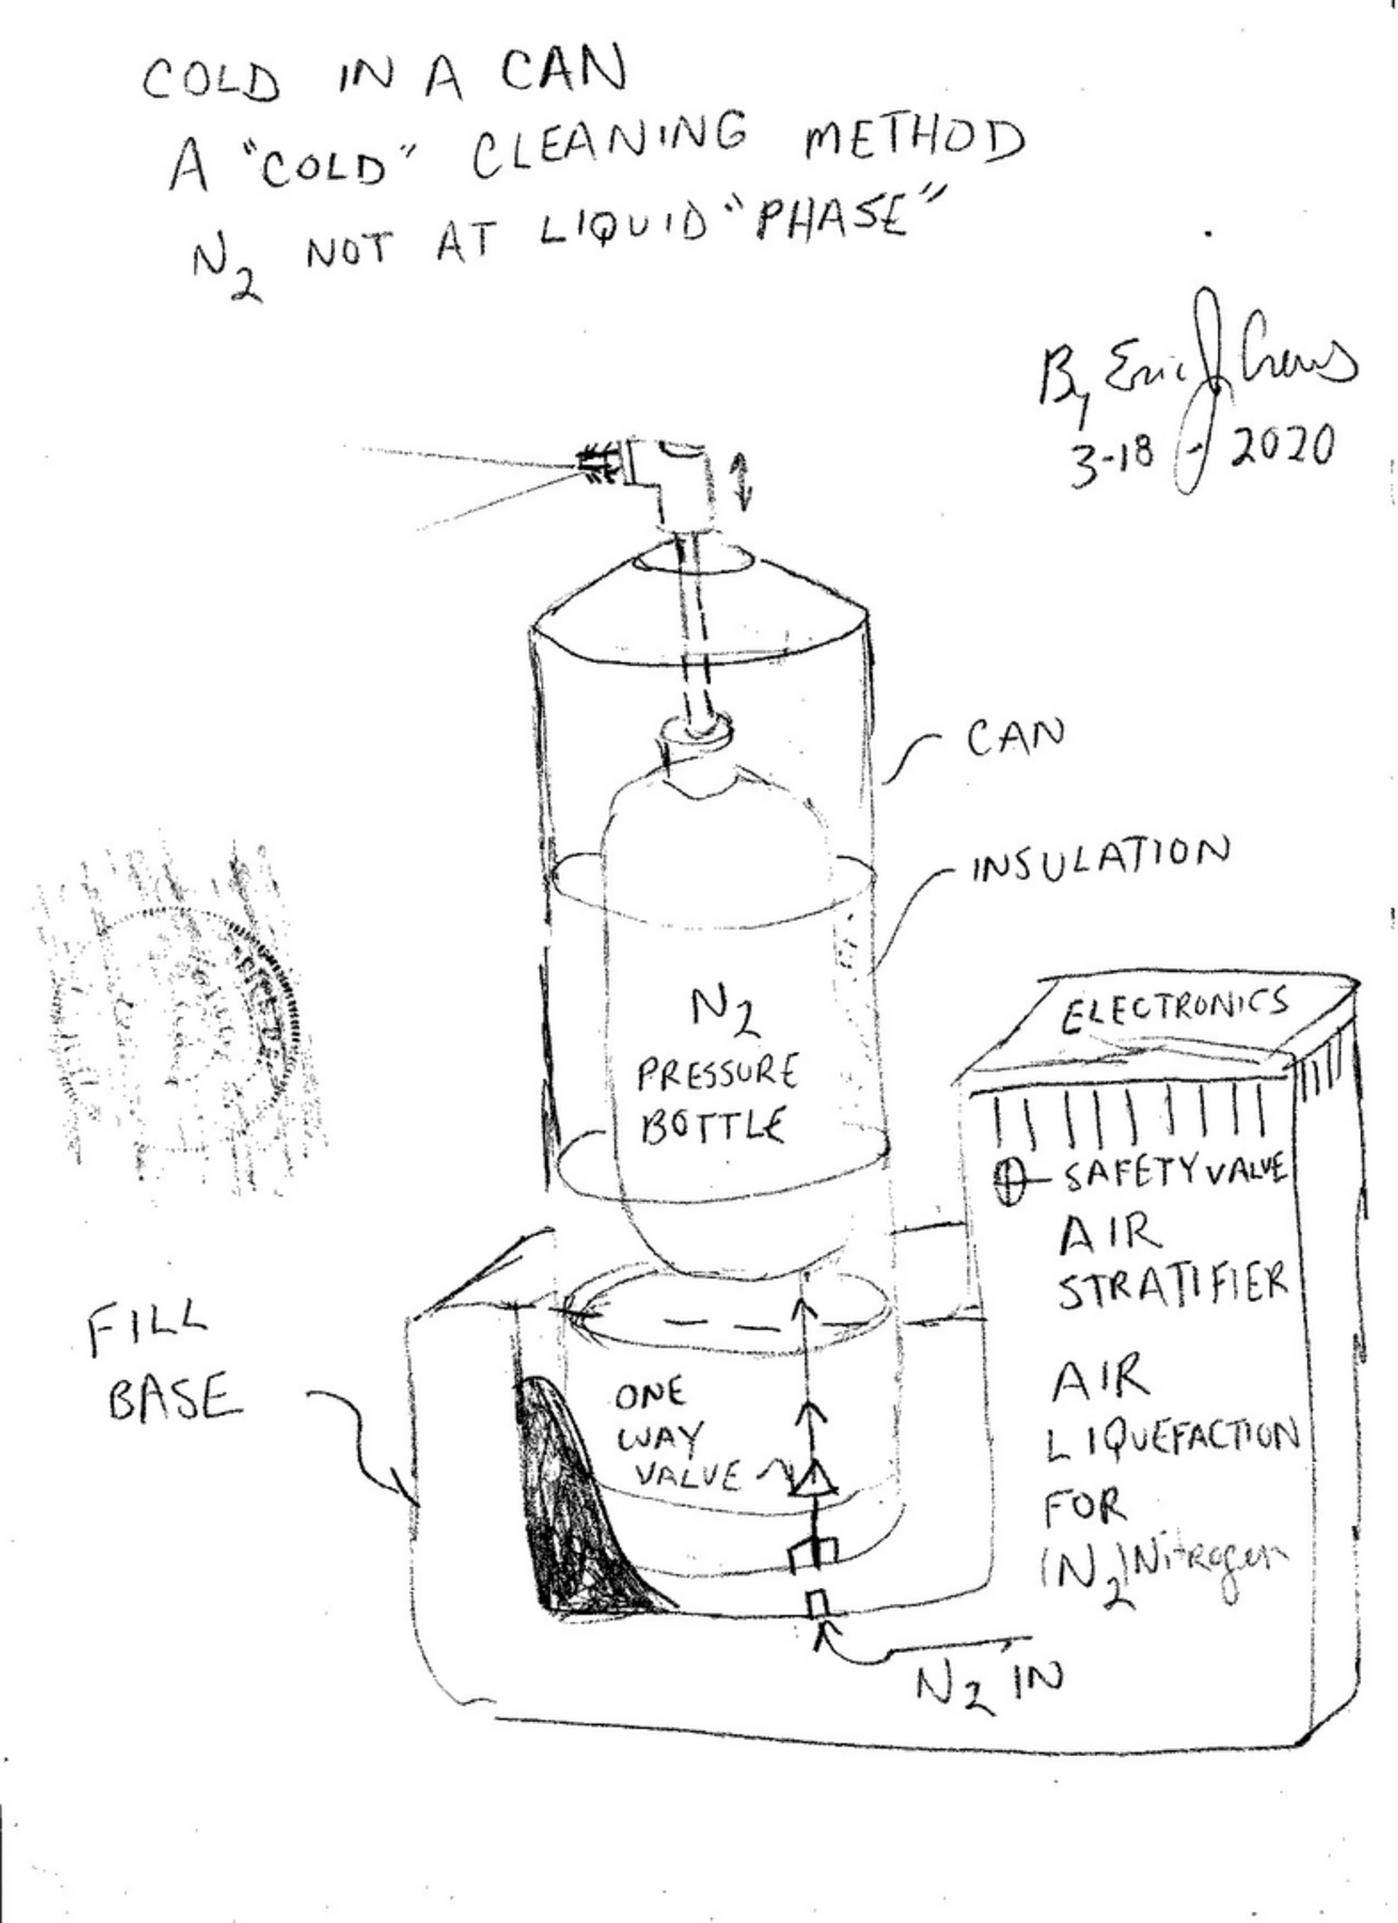 COLD IN A CAN
A "COLD" CLEANING METHOD
N2 NOT AT LIQUID "PHASE"
By Eric J Crews
3-18-2020
CAN
INSULATION
N2
PRESSURE
BOTTLE
ELECTRONICS
SAFETY VALVE
AIR
STRATIFIER
AIR
LIQUEFACTION
FOR
(N2) Nitrogen
FILL
BASE
ONE
WAY
VALVE
N2 IN